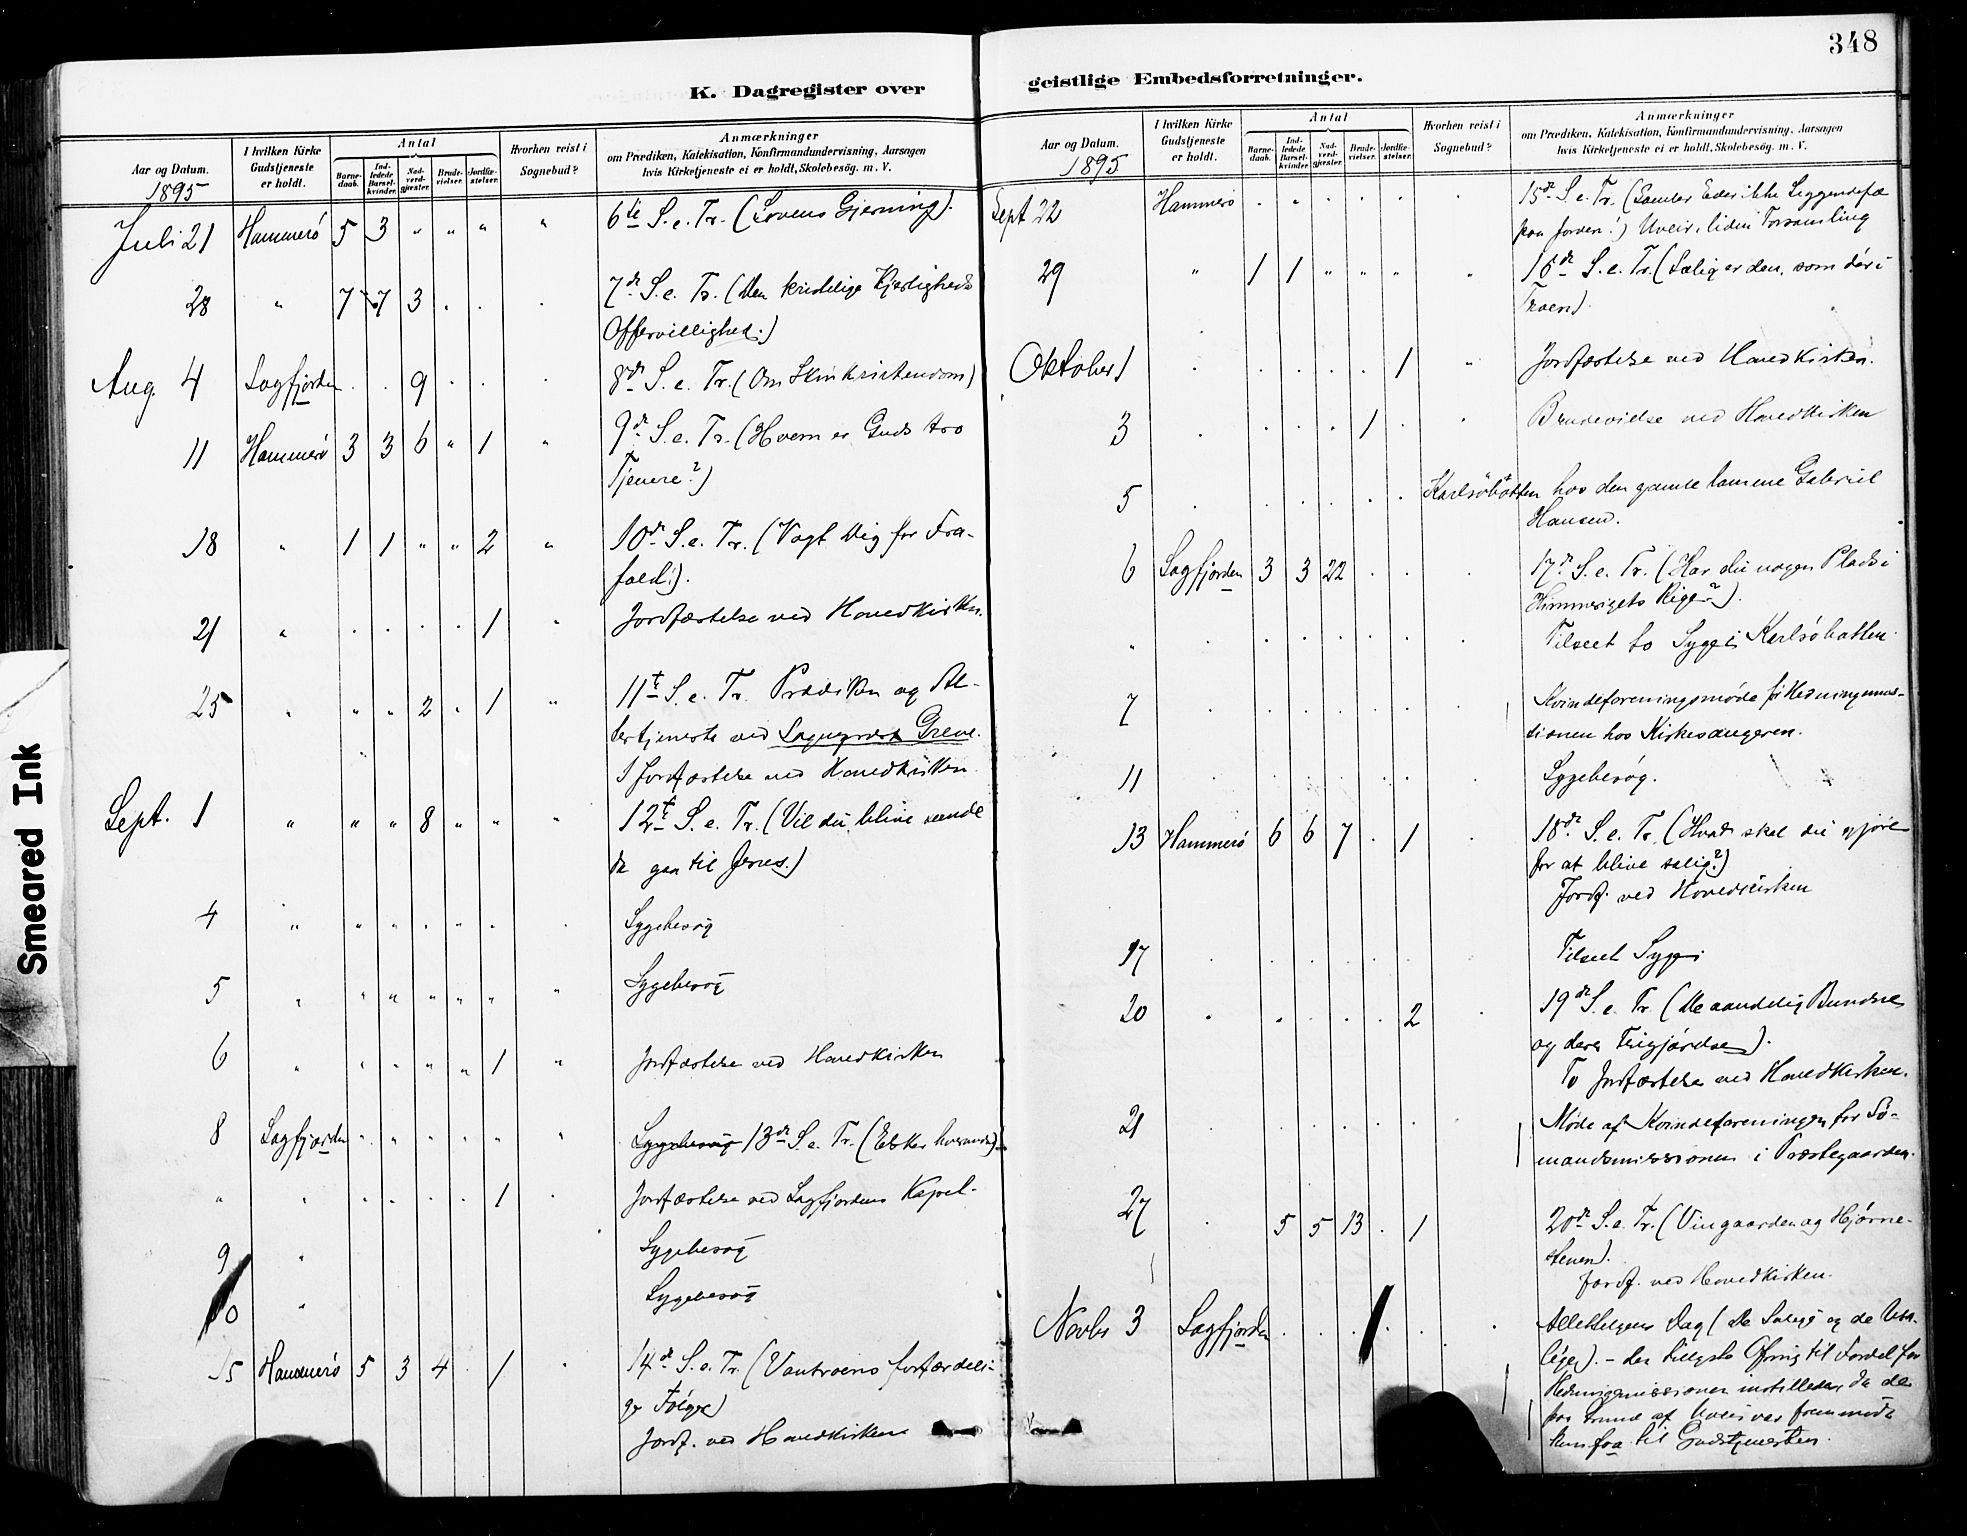 348
K. Dagregister over
geistlige Embedsforretninger.
Smeared Ink
Aar og Datum.
1895
I hvilken Kirke
Gudstjeneste
er holdt.
Antal
Barne-
daab.
Ind-
ledede
Barsel-
kvinder.
Nad-
verd-
gjester.
Brude-
vielser.
Jordfæ-
stelser.
Hvorhen reist i
Sognebud?
Anmærkninger
om Prædiken, Katekisation, Konfirmandundervisning, Aarsagen
hvis Kirketjeneste ei er holdt, Skolebesög. m. V.
Juli 21 Hammerö 5 3 " " " " 6te S. e. Tr. (Lovens Gjerning).
28 " 7 7 3 . . . 7de S. e. Tr. (Den kristelige Kjærligheds
Offervillighed.)
Aug. 4 Sagfjorden . . 9 . . . 8de S. e. Tr. (Om Skinkristendom)
11 Hammerö 3 3 6 " 1 " 9de S. e. Tr. (Hvem er Guds tro
Tjenere?)
18 " 1 1 " " 2 " 10de S. e. Tr. (Vogt Dig for Fra-
fald!).
21 " . . . . 1 " Jordfæstelse ved Hovedkirken.
25 " " " 2 . 1 " 11te S. e. Tr. Prædiken og Al-
tertjeneste ved Sogneprest Greve.
1 Jordfæstelse ved Hovedkirken.
Sept. 1 " " " 8 " " " 12te S. e. Tr. (Vil du blive sund
da gaa til Jesus.)
4 " " " . . . . Sygebesög
5 " " " " " " " Sygebesög
6 " " " " " 1 " Jordfæstelse ved Hovedkirken
8 Sagfjorden " " " " " " Sygebesög 13de S. e. Tr. (Elsker hverandre)
" " . . . . 1 . Jordfæstelse ved Sagfjordens Kapel.
9 " Sygebesög
10 " Sygebesög
15 Hammerö 5 3 4 . 1 . 14de S. e. Tr. (Vantroens forfærdeli-
ge Følger)
Jordf. ved Hovedkirken
Aar og Datum.
1895
I hvilken Kirke
Gudstjeneste
er holdt.
Antal
Barne-
daab.
Ind-
ledede
Barsel-
kvinder.
Nad-
verd-
gjester.
Brude-
vielser.
Jordfæ-
stelser.
Hvorhen reist i
Sognebud?
Anmærkninger
om Prædiken, Katekisation, Konfirmandundervisning, Aarsagen
hvis Kirketjeneste ei er holdt, Skolebesög. m. V.
Sept 22 Hammerö . . . . . . 15de S. e. Tr. (Samler Eder ikke Liggendefæ
paa Jorden!) Uveir, liden Forsamling
29 " 1 1 " " " " 16de S. e. Tr. (Salig er den, som dör i
Troen).
Oktober 1 . . . . . 1 " Jordfæstelse ved Hovedkirken.
3 . . . . 1 . . Brudevielse ved Hovedkirken
5 . . . . . . Karlsöbotten hos den gamle lamme Gabriel
Hansen.
6 Sagfjorden 3 3 22 . . . 17de S. e. Tr. (Har du nogen Plads i
Himmeriges Rige?).
" . . . . . . . Tilseet to Syge i Karlsöbotten.
7 . . . . . . Kvindeforeningsmøde for Hedningemis-
sionen hos Kirkesangeren.
11 . . . . . . Sygebesög.
13 Hammerö 6 6 7 . 1 . 18de S. e. Tr. (Hvad skal du gjöre
for at blive salig?)
Jordf. ved Hovedkirken
17 . . . . . . . Tilseet Syge
20 . . . . . 2 . 19de S. e. Tr. (De aandelig Bundne
og deres Frigjörelse).
To Jordfæstelser ved Hovedkirken.
21 . . . . . . Møde af Kvindeforeningen for Sö-
mandsmissionen i Præstegaarden.
27 . 5 5 13 . 1 20de S. e. Tr. (Vingaarden og Hjörne-
stenen).
Jordf. ved Hovedkirken.
Novbr 3 Sagfjorden . . . . . . Allehelgens Dag (De Salige og de Usa-
lige). - den tillyste Ofring til Fordel for
Hedningemissionen indstilledes, da de
paa Grund af Uveir var fremmødt
kun faa til Gudstjenesten.